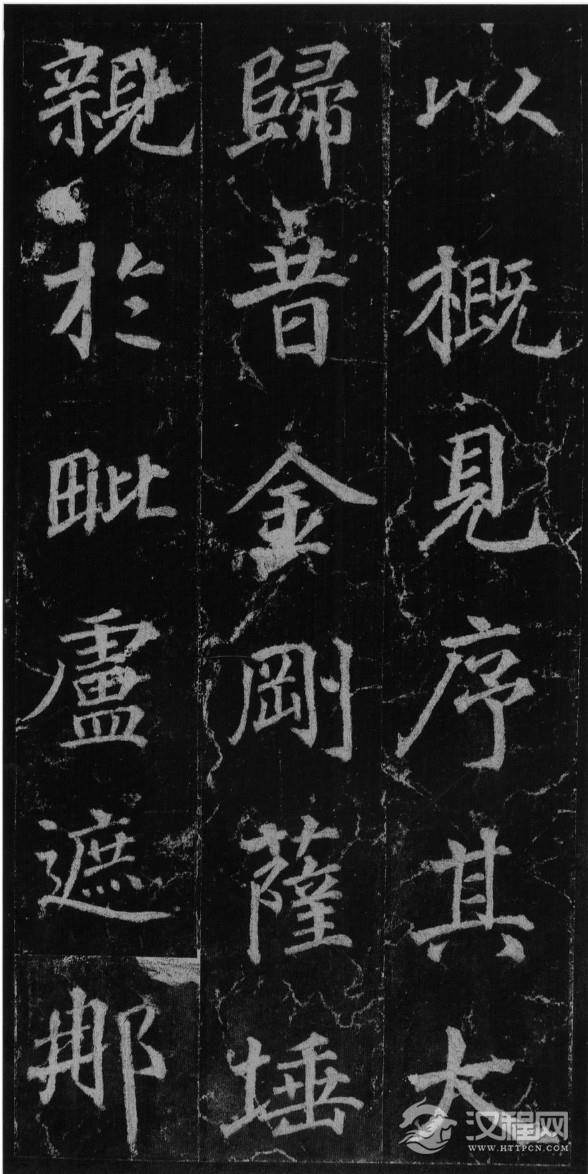 以概見序其大
歸昔金剛薩埵
親於毗盧遮那
汉程网
WWW.HTTPCN.COM